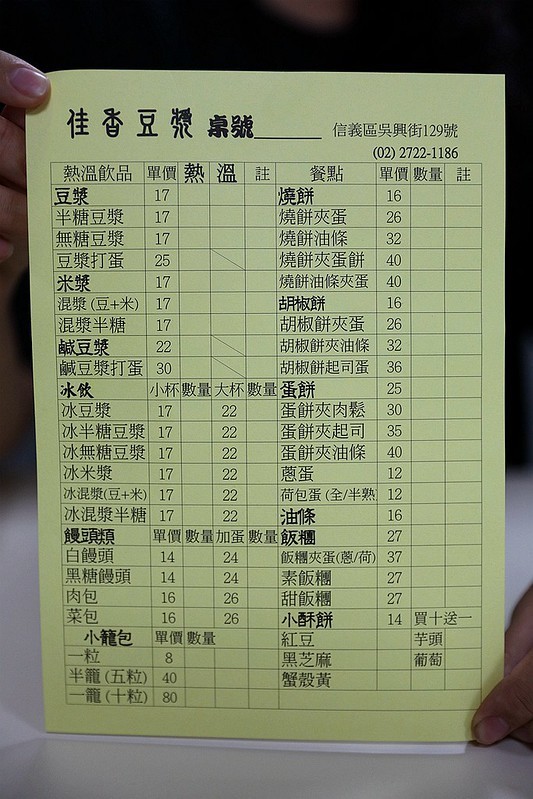 佳香豆漿 桌號______ 信義區吳興街129號
(02) 2722-1186
熱溫飲品 單價 熱 溫 註 餐點 單價 數量 註
豆漿 17 燒餅 16
半糖豆漿 17 燒餅夾蛋 26
無糖豆漿 17 燒餅油條 32
豆漿打蛋 25 燒餅夾蛋餅 40
米漿 17 燒餅油條夾蛋 40
混漿 (豆+米) 17 胡椒餅 16
混漿半糖 17 胡椒餅夾蛋 26
鹹豆漿 22 胡椒餅夾油條 32
鹹豆漿打蛋 30 胡椒餅起司蛋 36
冰飲 小杯 數量 大杯 數量 蛋餅 25
冰豆漿 17 22 蛋餅夾肉鬆 30
冰半糖豆漿 17 22 蛋餅夾起司 35
冰無糖豆漿 17 22 蛋餅夾油條 40
冰米漿 17 22 蔥蛋 12
冰混漿(豆+米) 17 22 荷包蛋 (全/半熟) 12
冰混漿半糖 17 22 油條 16
饅頭類 單價 數量 加蛋 數量 飯糰 27
白饅頭 14 24 飯糰夾蛋(蔥/荷) 37
黑糖饅頭 14 24 素飯糰 27
肉包 16 26 甜飯糰 27
菜包 16 26 小酥餅 14 買十送一
小籠包 單價 數量 紅豆 芋頭
一粒 8 黑芝麻 葡萄
半籠 (五粒) 40 蟹殼黃
一籠 (十粒) 80